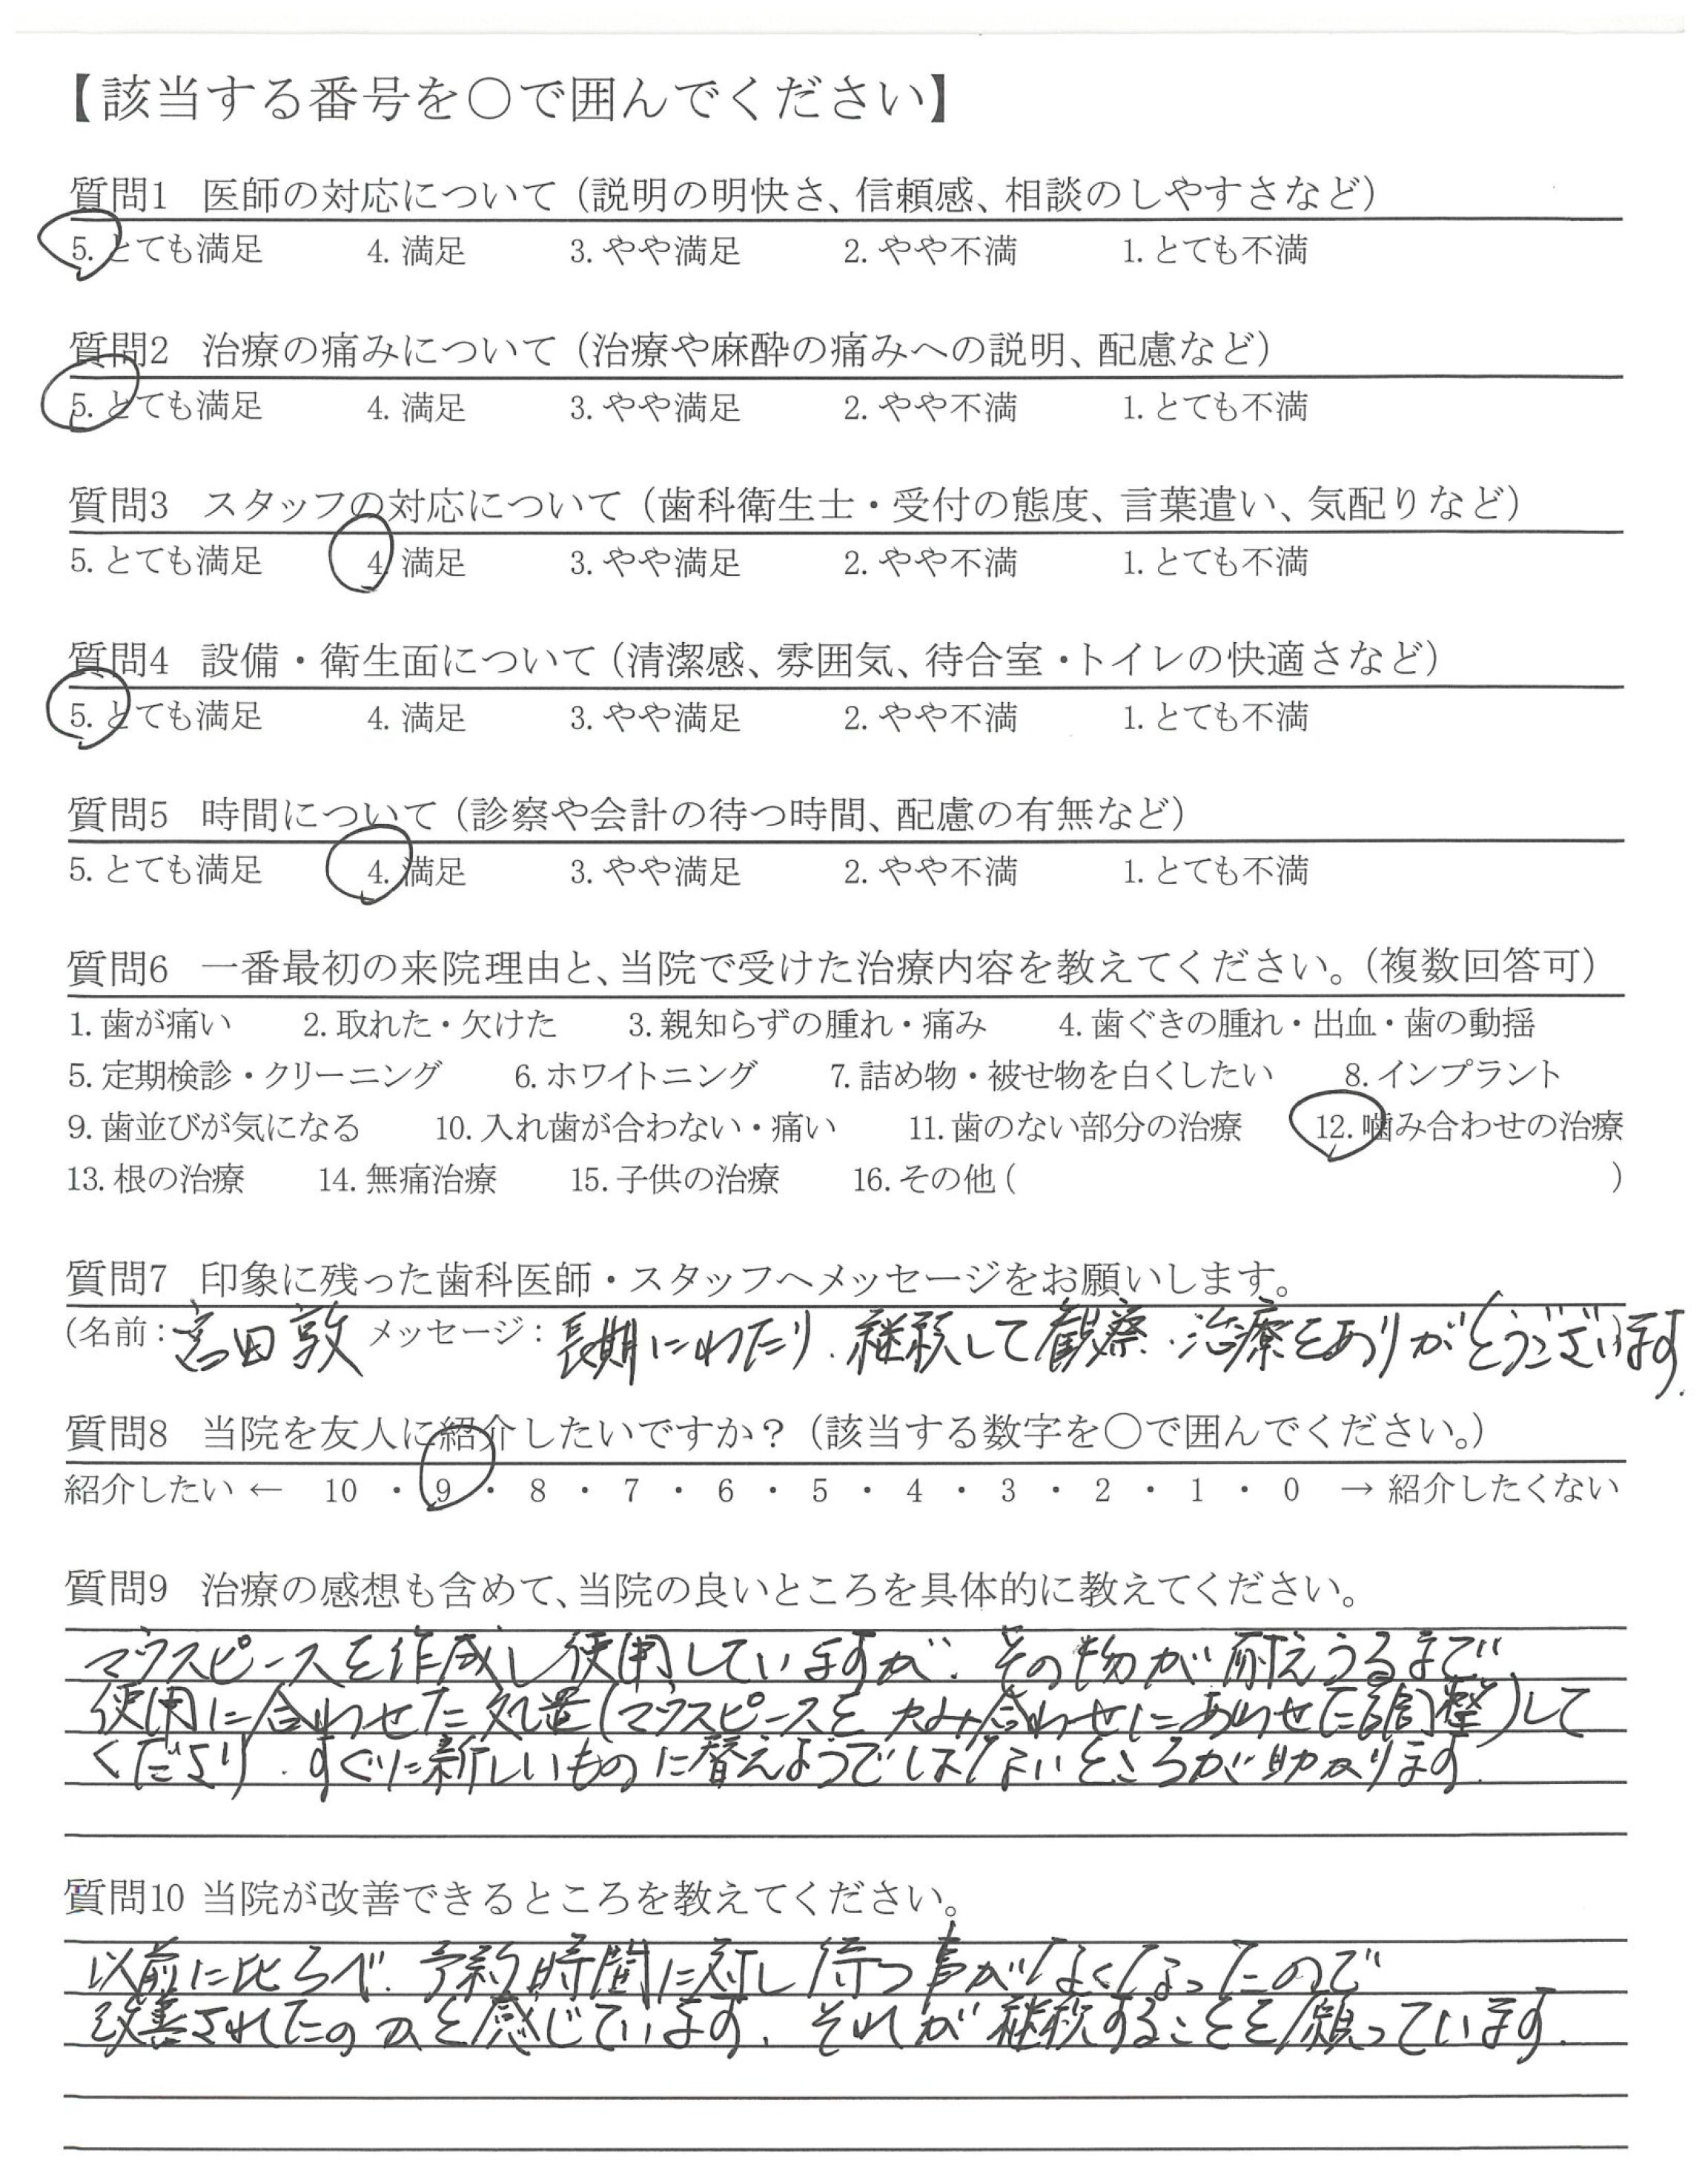 【該当する番号を○で囲んでください】
質問1 医師の対応について（説明の明快さ、信頼感、相談のしやすさなど）
5. とても満足 4. 満足 3. やや満足 2. やや不満 1. とても不満
質問2 治療の痛みについて（治療や麻酔の痛みへの説明、配慮など）
5. とても満足 4. 満足 3. やや満足 2. やや不満 1. とても不満
質問3 スタッフの対応について（歯科衛生士・受付の態度、言葉遣い、気配りなど）
5. とても満足 4. 満足 3. やや満足 2. やや不満 1. とても不満
質問4 設備・衛生面について（清潔感、雰囲気、待合室・トイレの快適さなど）
5. とても満足 4. 満足 3. やや満足 2. やや不満 1. とても不満
質問5 時間について（診察や会計の待つ時間、配慮の有無など）
5. とても満足 4. 満足 3. やや満足 2. やや不満 1. とても不満
質問6 一番最初の来院理由と、当院で受けた治療内容を教えてください。（複数回答可）
1. 歯が痛い 2. 取れた・欠けた 3. 親知らずの腫れ・痛み 4. 歯ぐきの腫れ・出血・歯の動揺
5. 定期検診・クリーニング 6. ホワイトニング 7. 詰め物・被せ物を白くしたい 8. インプラント
9. 歯並びが気になる 10. 入れ歯が合わない・痛い 11. 歯のない部分の治療 12. 噛み合わせの治療
13. 根の治療 14. 無痛治療 15. 子供の治療 16. その他（ ）
質問7 印象に残った歯科医師・スタッフへメッセージをお願いします。
（名前：宮田敦 メッセージ：長期にわたり、継続して観察、治療をありがとうございます。
質問8 当院を友人に紹介したいですか？（該当する数字を○で囲んでください。）
紹介したい ← 10 ・ 9 ・ 8 ・ 7 ・ 6 ・ 5 ・ 4 ・ 3 ・ 2 ・ 1 ・ 0 → 紹介したくない
質問9 治療の感想も含めて、当院の良いところを具体的に教えてください。
マウスピースを作成し使用していますが、その物が耐えうるまで
使用に合わせた処置（マウスピースをかみ合わせにあわせた調整）して
くださり、すぐに新しいものに替えようでしないところが助かります。
質問10 当院が改善できるところを教えてください。
以前に比らべ、予約時間に対し待つ事がなくなったので
改善されたのかと感じています。それが継続することを願っています。